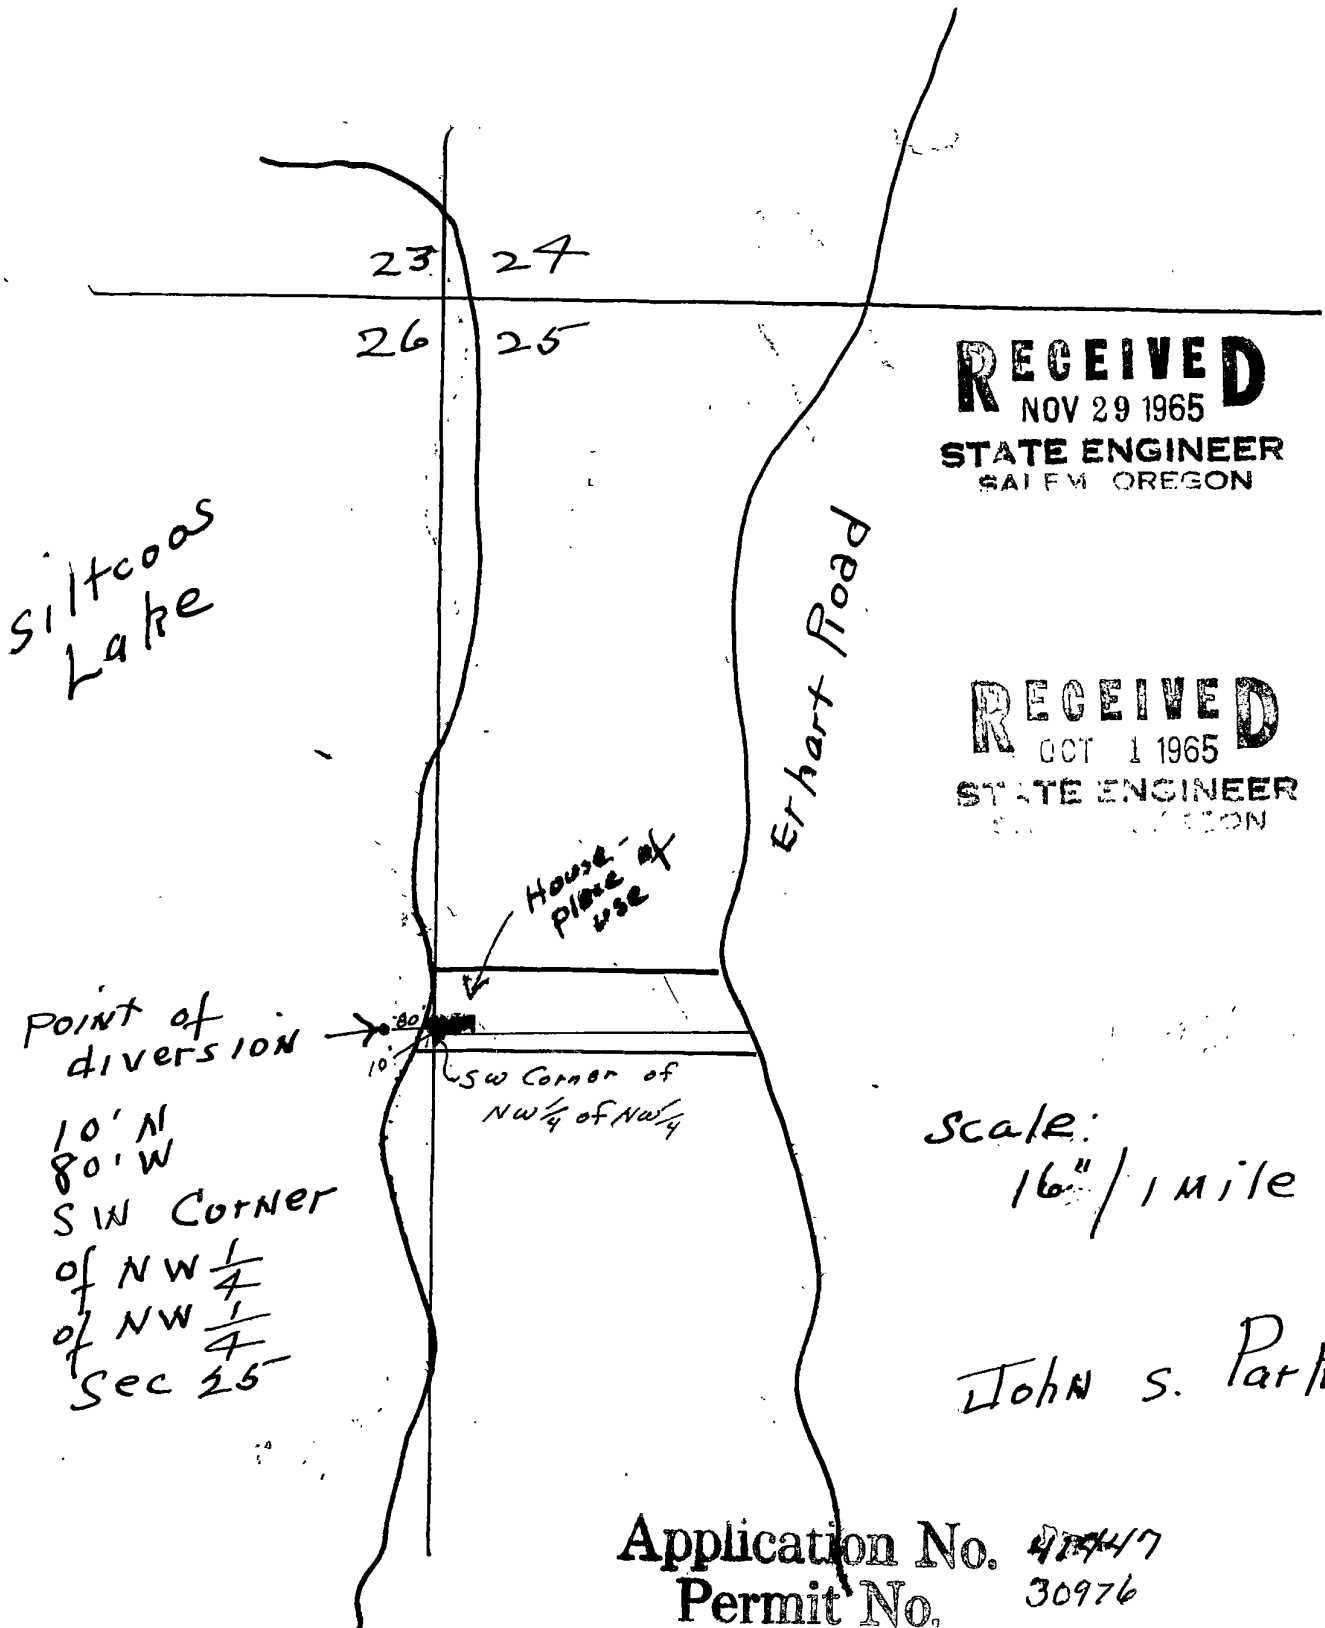 23 24
26 25
RECEIVED
NOV 29 1965
STATE ENGINEER
SALEM OREGON
Siltcoos
Lake
Erhart Road
RECEIVED
OCT 1 1965
STATE ENGINEER
House-
place of
use
Point of
diversion
80'
10'
SW Corner of
NW 1/4 of NW 1/4
10' N
80' W
SW Corner
of NW 1/4
of NW 1/4
Sec 25
Scale:
16"/1 Mile
John S. Park
Application No.
Permit No. 30976